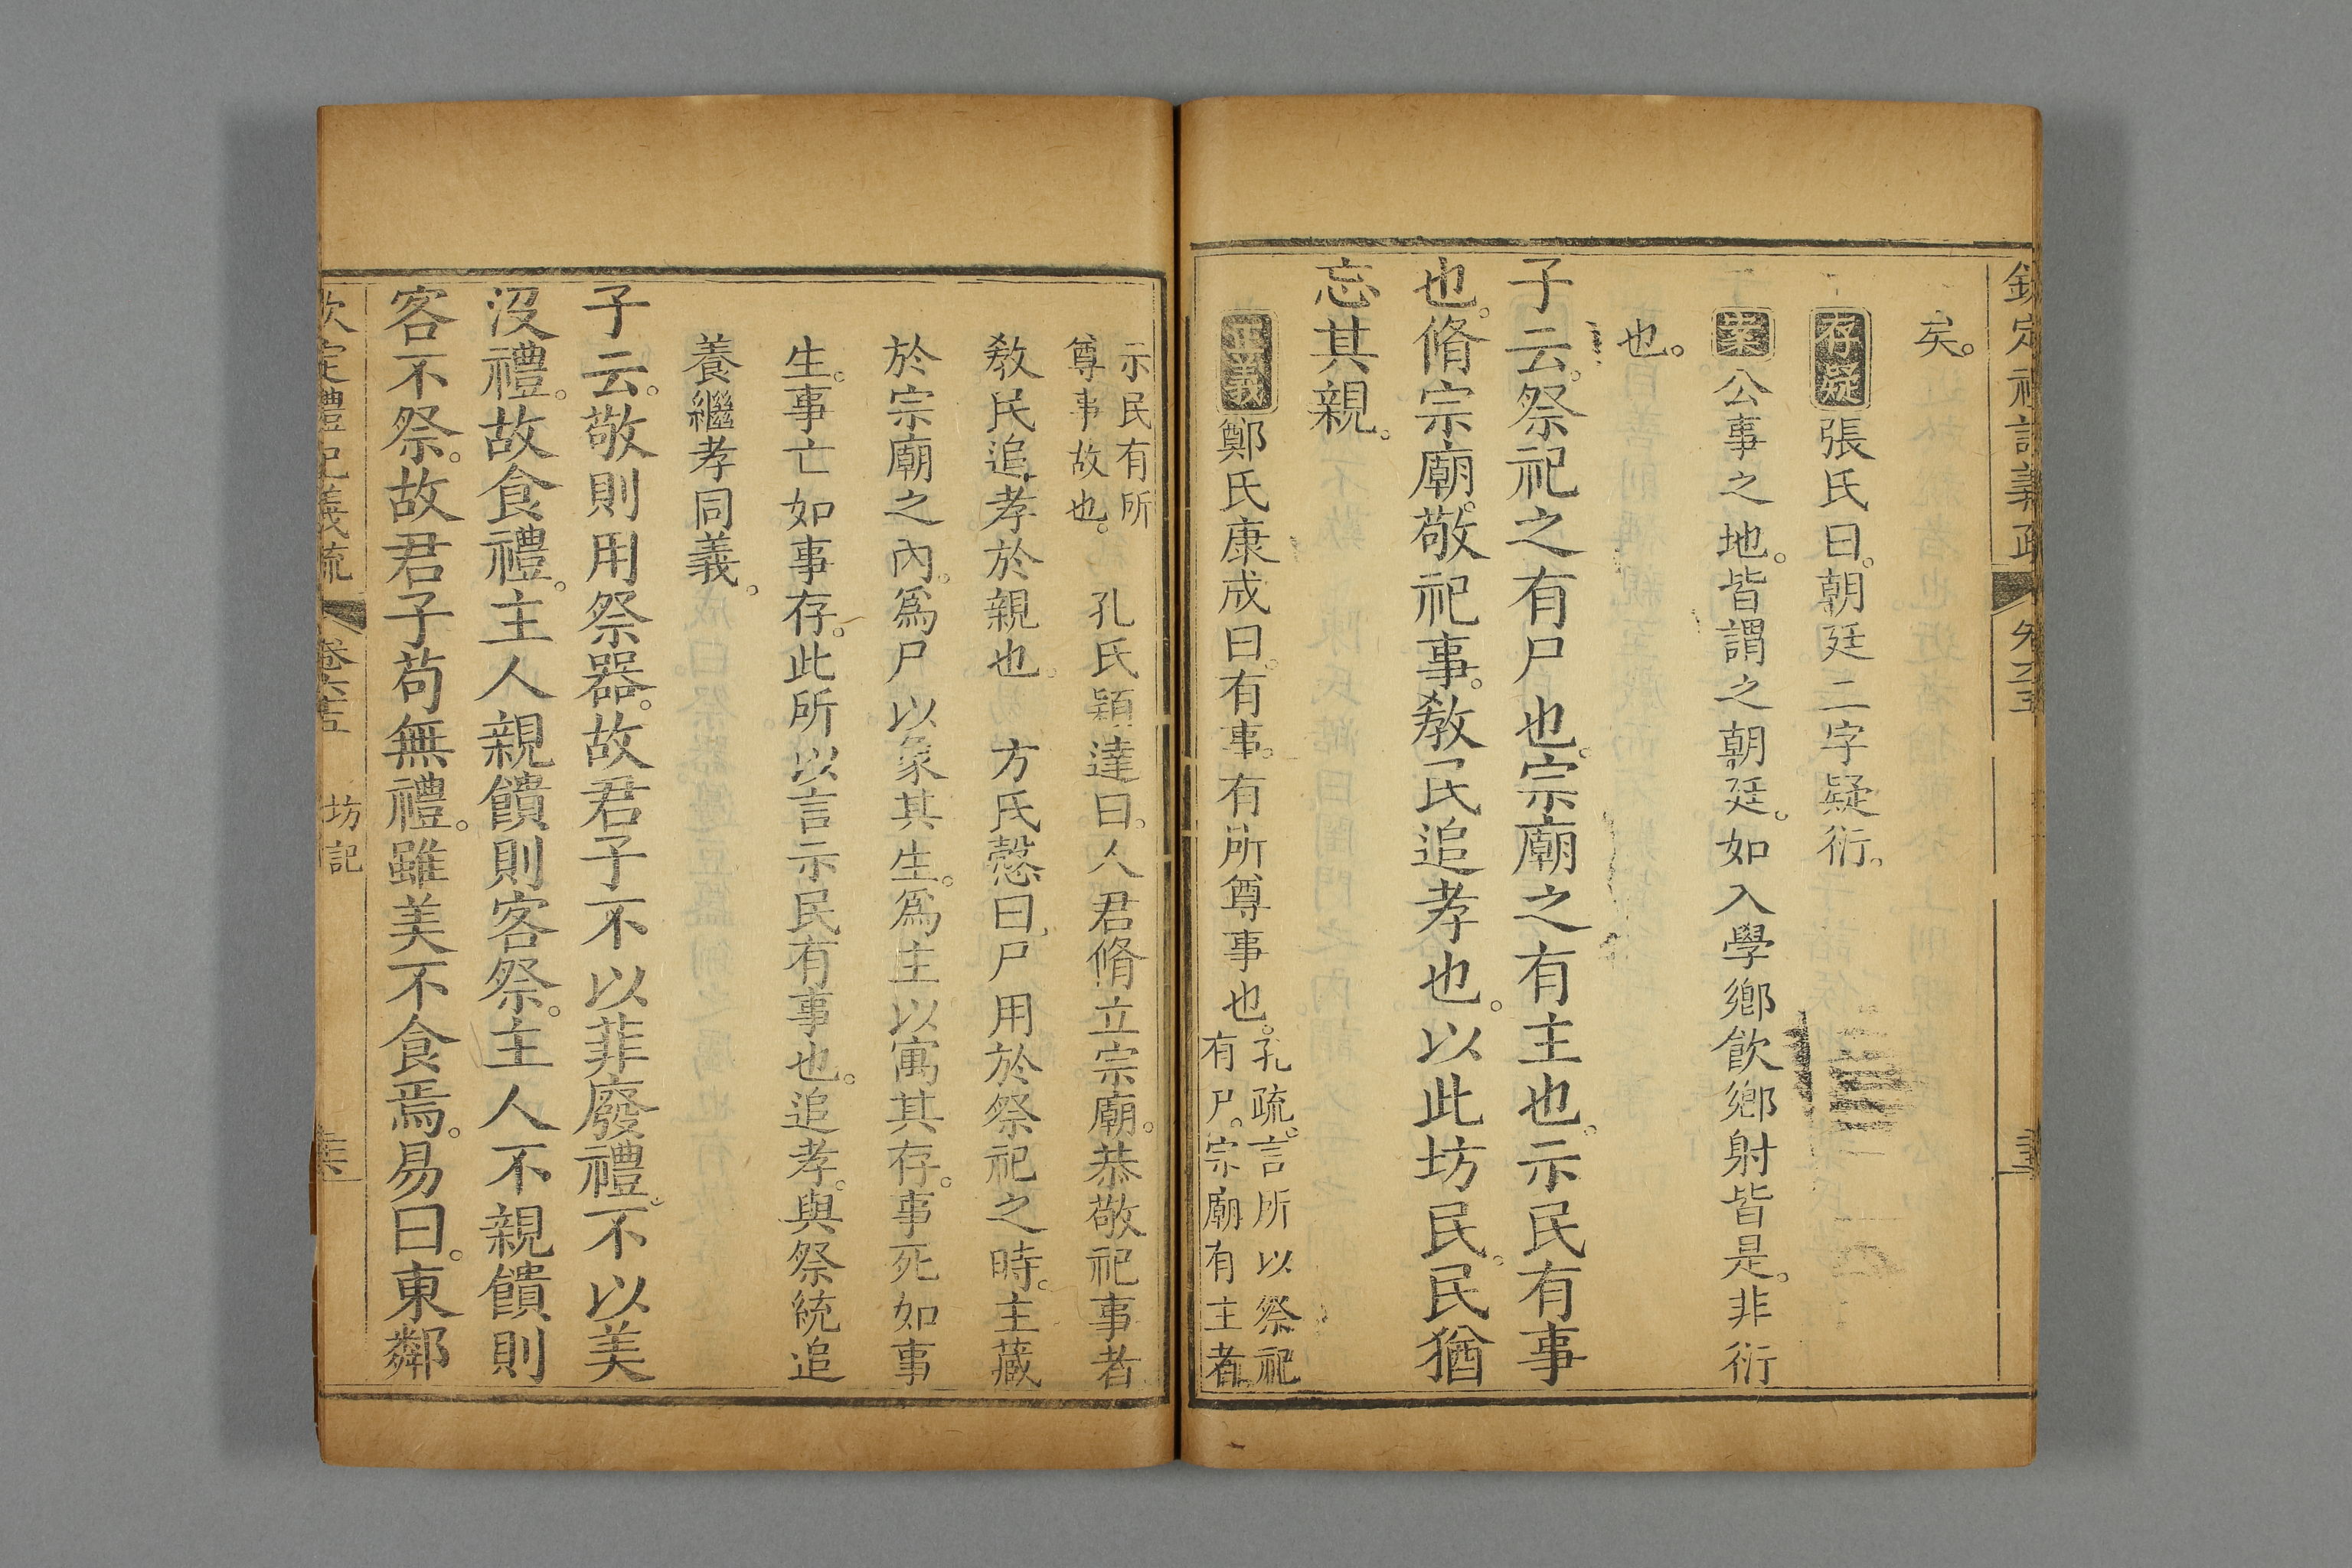 欽定禮記義疏 卷六十五
矣。
存疑 張氏曰。朝廷二字疑衍。
案 公事之地。皆謂之朝廷。如入學鄉飲鄉射皆是。非衍
也。
子云。祭祀之有尸也。宗廟之有主也。示民有事
也。脩宗廟。敬祀事。敎民追孝也。以此坊民。民猶
忘其親。
正義 鄭氏康成曰。有事。有所尊事也。孔疏。言所以祭祀
有尸。宗廟有主者。
示民有所
尊事故也。 孔氏穎達曰。人君脩立宗廟。恭敬祀事者
敎民追孝於親也。 方氏慤曰。尸用於祭祀之時。主藏
於宗廟之內。爲尸以象其生。爲主以寓其存。事死如事
生。事亡如事存。此所以言示民有事也。追孝。與祭統追
養繼孝同義。
子云。敬則用祭器。故君子不以菲廢禮。不以美
沒禮。故食禮。主人親饋則客祭。主人不親饋則
客不祭。故君子苟無禮。雖美不食焉。易曰。東鄰
欽定禮記義疏 卷六十五 坊記